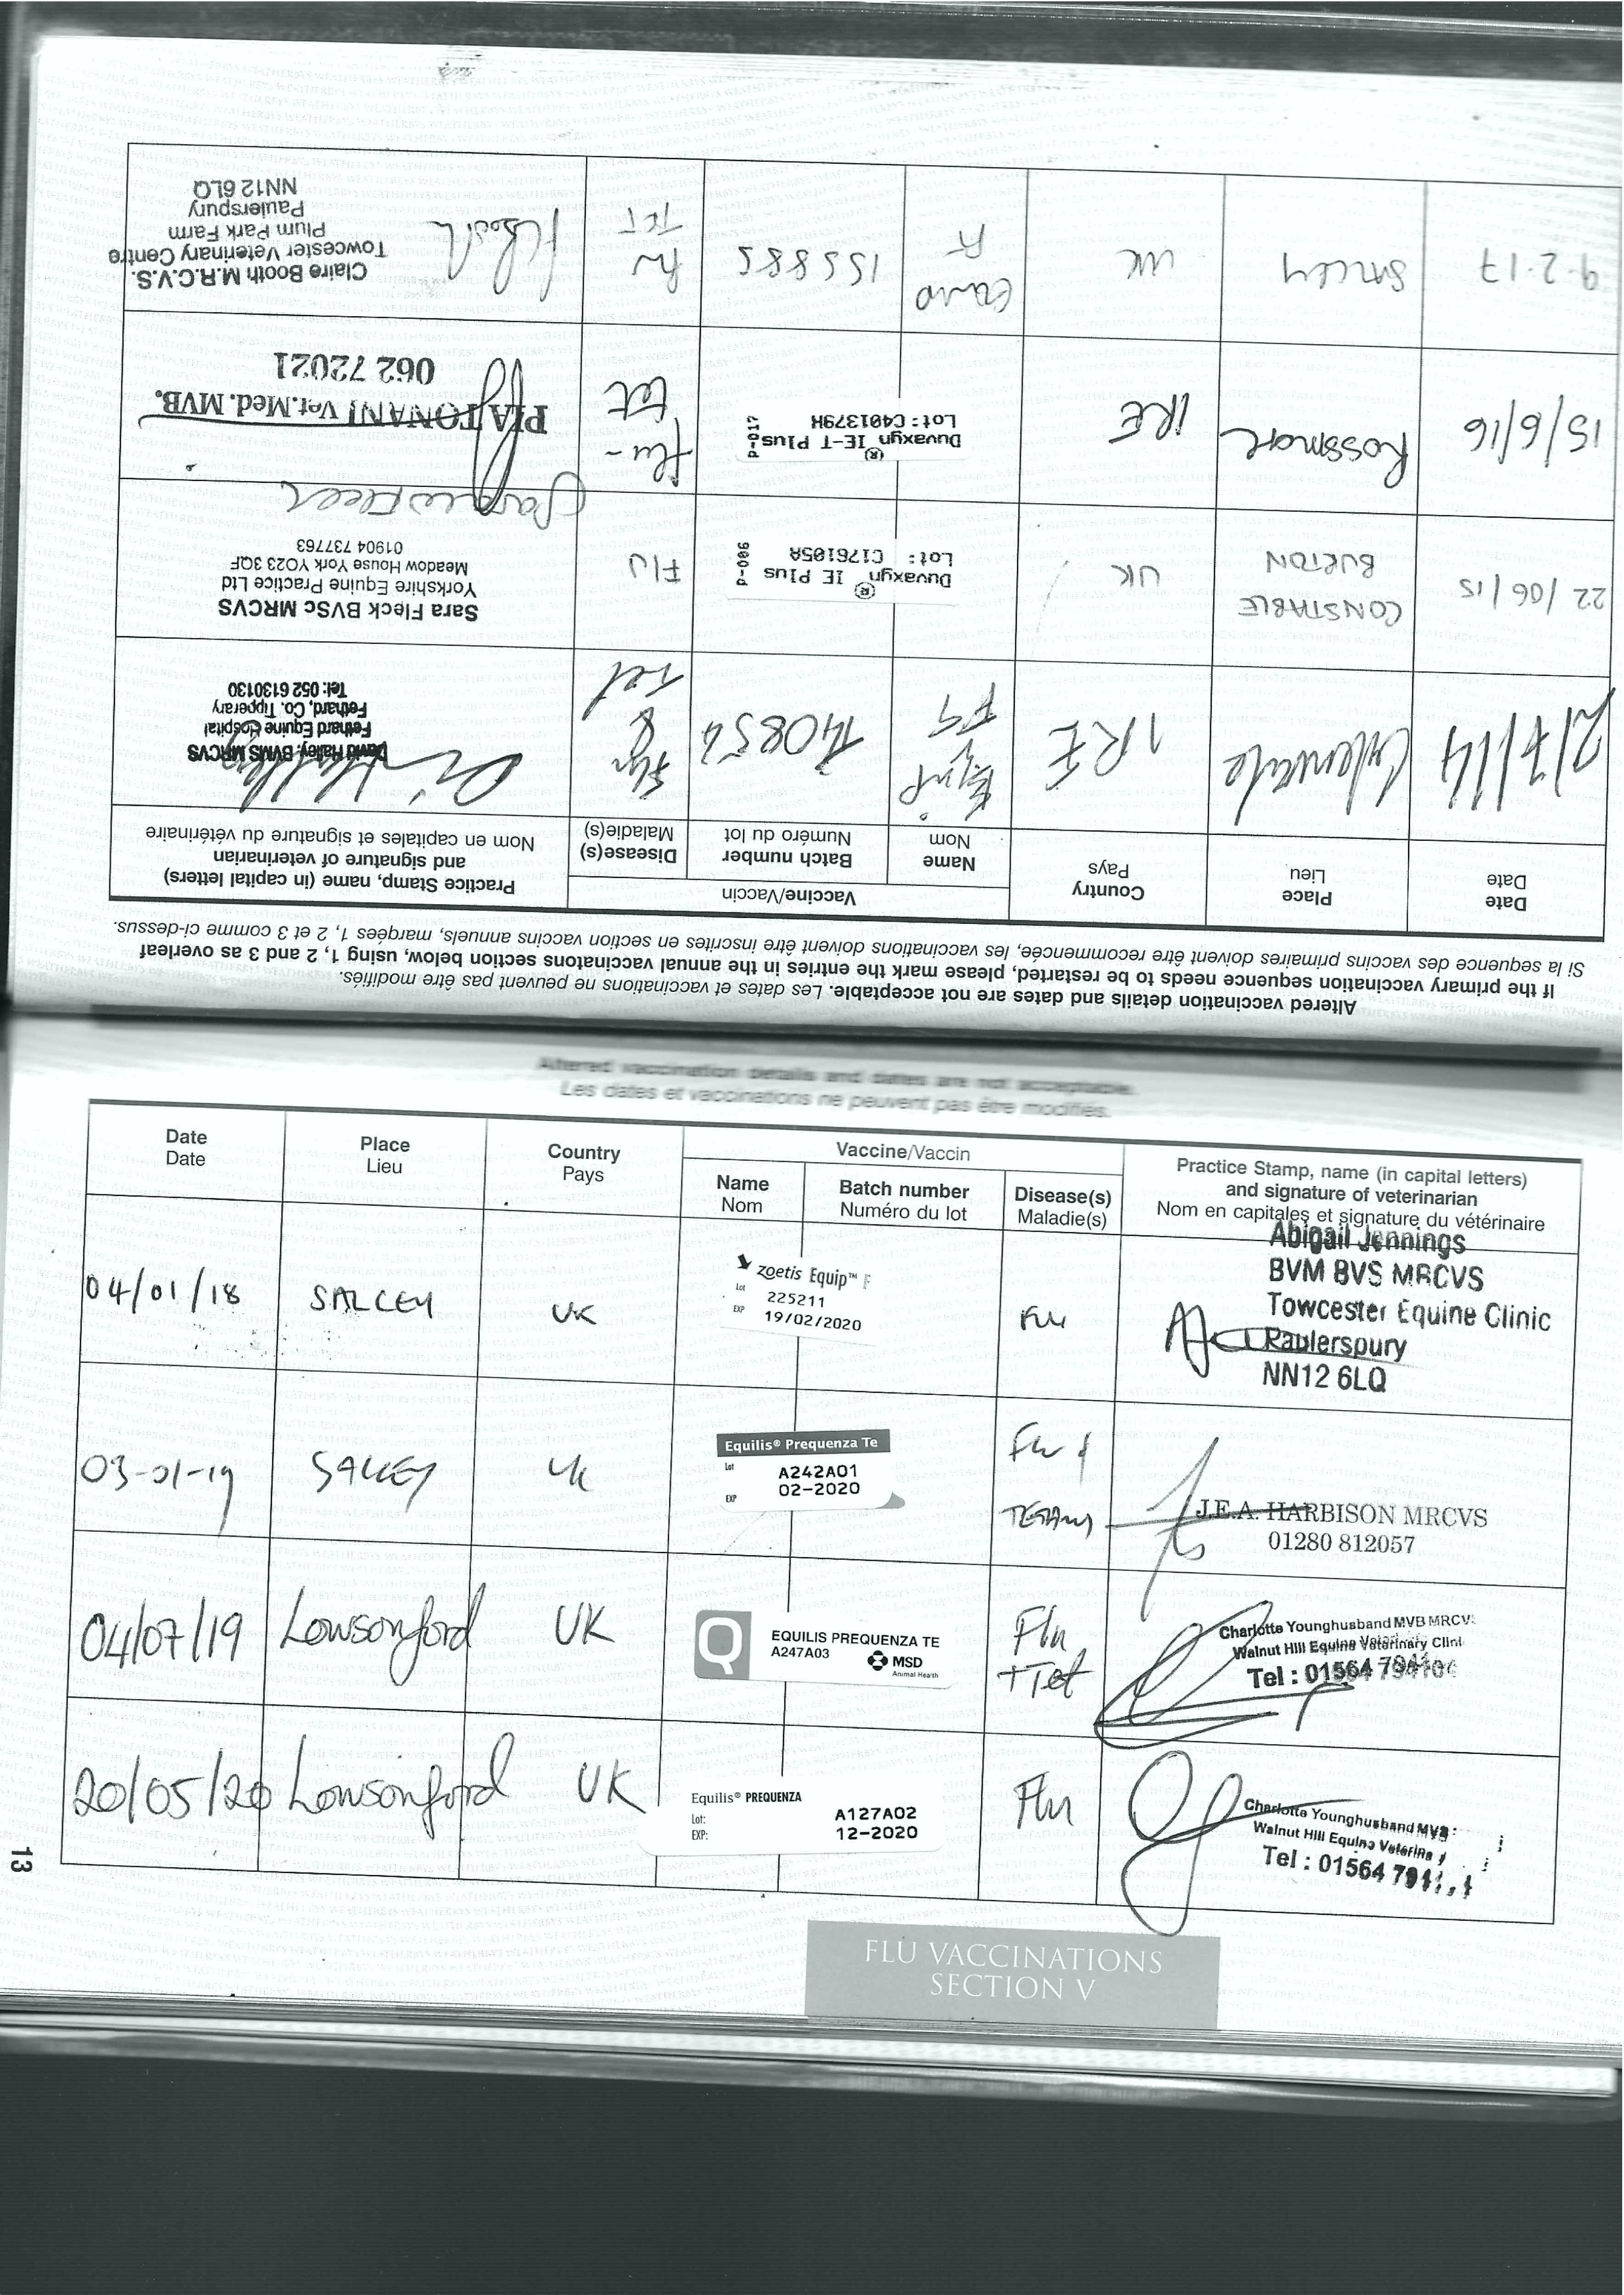 Altered vaccination details and dates are not acceptable. Les dates et vaccinations ne peuvent pas être modifiés.
If the primary vaccination sequence needs to be restarted, please mark the entries in the annual vaccinatons section below, using 1, 2 and 3 as overleaf
Si la sequence des vaccins primaires doivent être recommencée, les vaccinations doivent être inscrites en section vaccins annuels, margées 1, 2 et 3 comme ci-dessus.
Date
Date
Place
Lieu
Country
Pays
Vaccine/Vaccin
Name
Nom
Batch number
Numéro du lot
Disease(s)
Maladie(s)
Practice Stamp, name (in capital letters)
and signature of veterinarian
Nom en capitales et signature du vétérinaire
2/7/14
IRE
EquiP
FT
140854
Flu
&
Tet
David Halley BVMS MRCVS
Fethard Equine Hospital
Fethard, Co. Tipperary
Tel: 052 6130130
22/06/15
BURTON
CONSTABLE
UK
Duvaxyn® IE Plus
Lot: C176105A
P-006
Flu
Sara Fleck BVSc MRCVS
Yorkshire Equine Practice Ltd
Meadow House York YO23 3QF
01904 737763
15/6/16
Rossmore
IRE
Duvaxyn® IE-T Plus
Lot: C401379H
P-017
flu-
tet
PIA TONANI Vet.Med. MVB.
062 72021
9.2.17
SALCEY
UK
EQUIP
FT
155885
Flu
TET
Claire Booth M.R.C.V.S.
Towcester Veterinary Centre
Plum Park Farm
Paulerspury
NN12 6LQ
Altered vaccination details and dates are not acceptable.
Les dates et vaccinations ne peuvent pas être modifiés.
Date
Date
Place
Lieu
Country
Pays
Vaccine/Vaccin
Name
Nom
Batch number
Numéro du lot
Disease(s)
Maladie(s)
Practice Stamp, name (in capital letters)
and signature of veterinarian
Nom en capitales et signature du vétérinaire
04/01/18
SALCEY
UK
zoetis Equip™ F
Lot 225211
EXP 19/02/2020
Flu
Abigail Jennings
BVM BVS MRCVS
Towcester Equine Clinic
Paulerspury
NN12 6LQ
03-01-19
SALCEY
UK
Equilis® Prequenza Te
Lot A242A01
EXP 02-2020
Flu &
TETANUS
J.E.A. HARBISON MRCVS
01280 812057
04/07/19
Lowsonford
UK
Q
EQUILIS PREQUENZA TE
A247A03
MSD
Animal Health
Flu
+Tet
Charlotte Younghusband MVB MRCV
Walnut Hill Equine Veterinary Clini
Tel : 01564 794104
20/05/20
Lowsonford
UK
Equilis® PREQUENZA
Lot: A127A02
EXP: 12-2020
Flu
Charlotte Younghusband MVB
Walnut Hill Equine Veterina
Tel : 01564
13
FLU VACCINATIONS
SECTION V